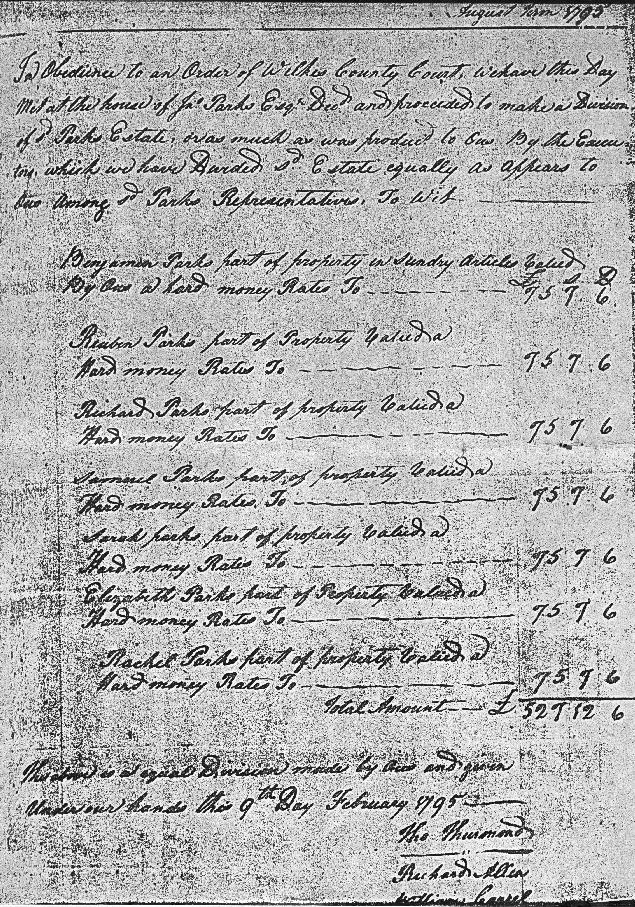 August Term 1795
In Obedience to an Order of Wilkes County Court, we have this Day
Met at the house of Jno Parks Esqr. Decd and proceeded to make a Division
of sd Parks Estate, or as much as was producd to Ous By the Execu-
tors, which we have Divided sd Estate equally As Appears to
Ous Among sd Parks Representatives, To Wit
Benjamin Parks part of property in Sundry Articles Valied
£ S D
By Ous a hard money Rates To 75 7 6
Reuben Parks part of Property Valied a
Hard money Rates To 75 7 6
Richard Parks part of property Valied a
Hard money Rates To 75 7 6
Samuel Parks part of property Valied a
Hard money Rates To 75 7 6
Sarah parks part of property Valied a
Hard money Rates To 75 7 6
Elizabeth Parks part of Property Valued a
Hard money Rates To 75 7 6
Rachel Parks part of property Valied a
Hard money Rates To 75 7 6
Total Amount £ 527 12 6
is a equal Division made by Ous and given
Under our hands this 9th Day February 1795
Tho Thurmond
Richard Allen
William